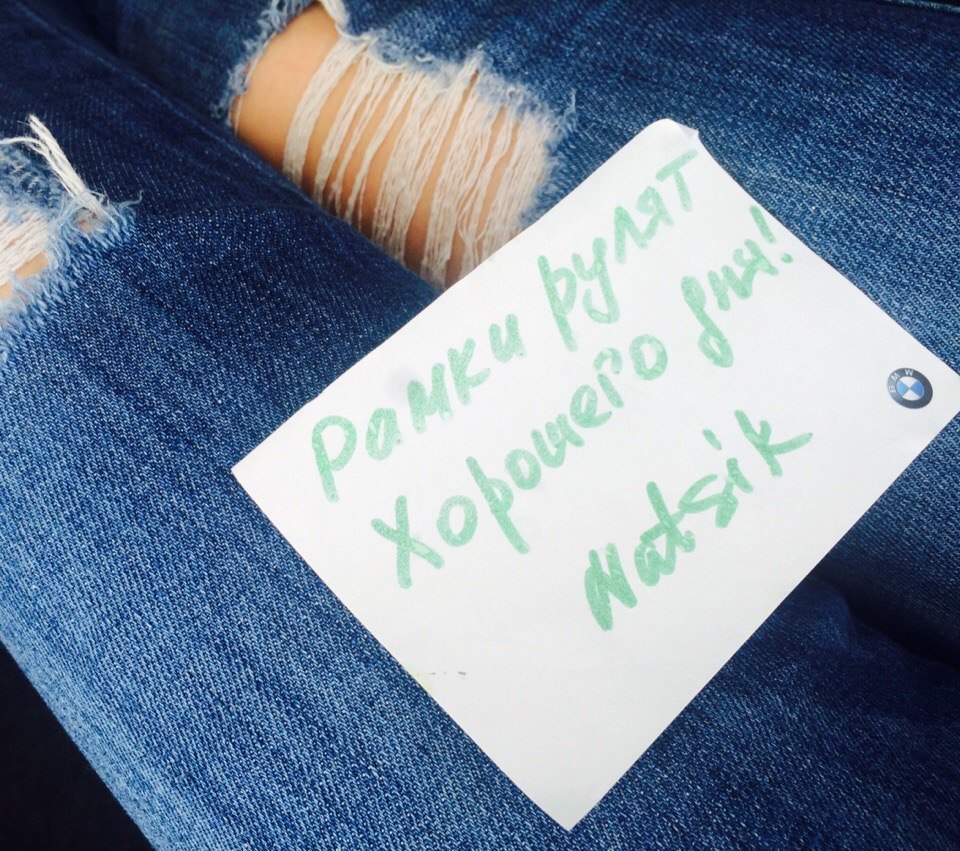 Рамки рулят
Хорошего дня!
Natsik
BMW